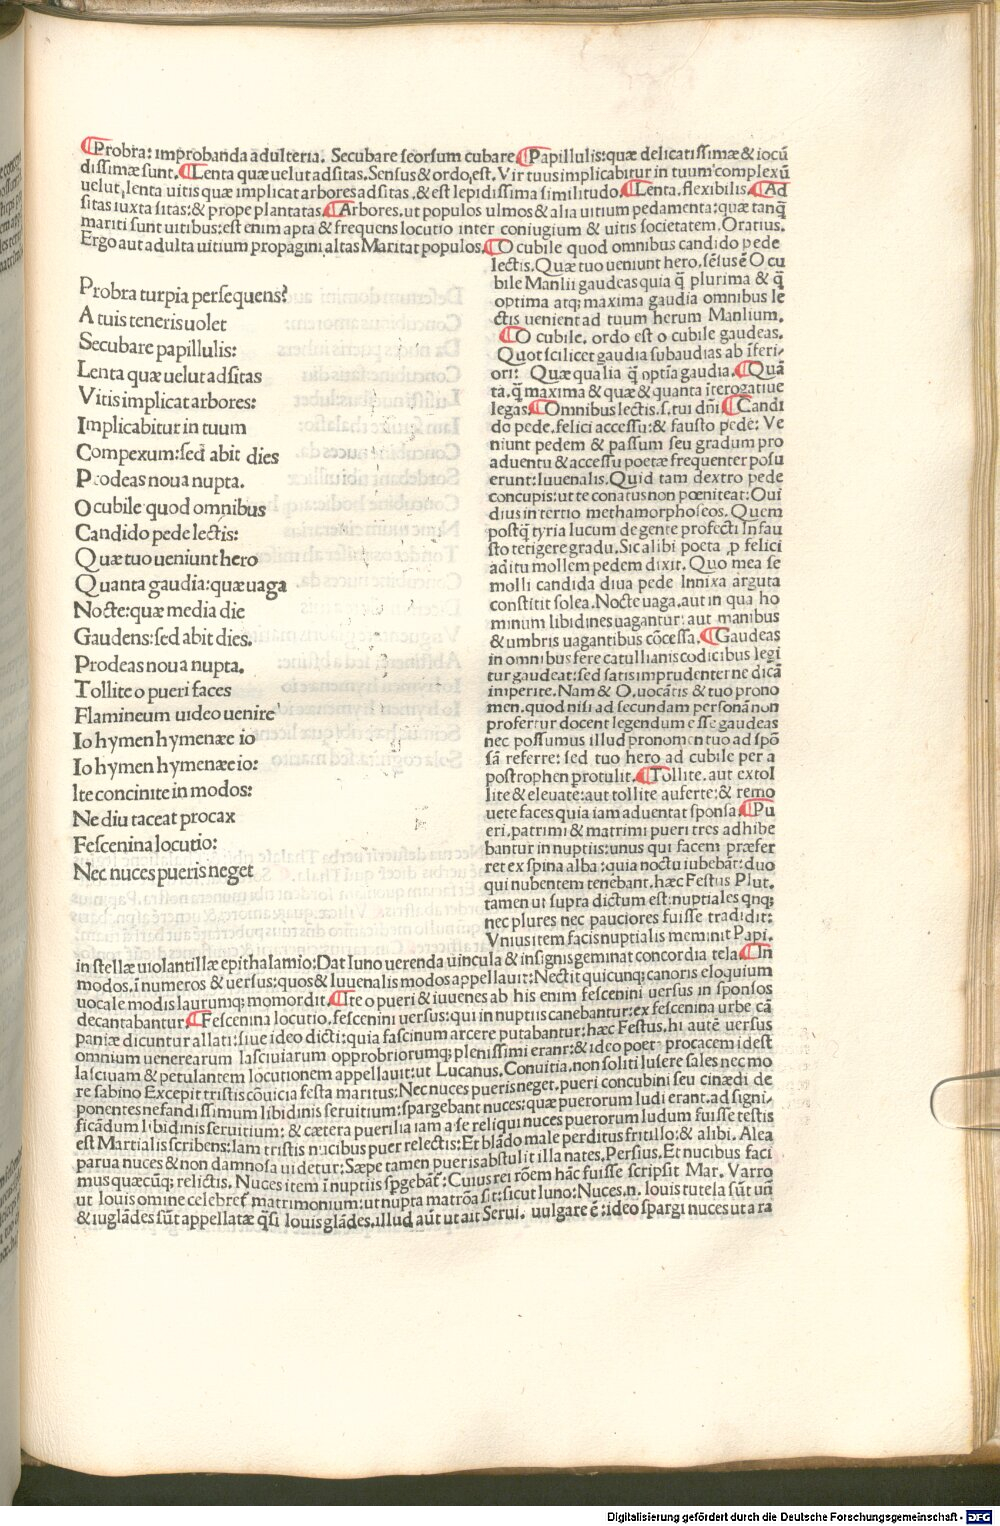 Probra: improbanda adulteria. Secubare seorsum cubare. Papillulis: quæ delicatissimæ & iocū
dissimæ sunt. Lenta quæ uelut adsitas. Sensus & ordo, est. Vir tuus implicabitur in tuum complexū
uelut, lenta uitis quæ implicat arbores adsitas, & est lepidissima similitudo. Lenta. flexibilis. Ad
sitas iuxta sitas: & prope plantatas. Arbores. ut populos ulmos & alia uitium pedamenta: quæ tanq̄
mariti sunt uitibus: est enim apta & frequens locutio inter coniugium & uitis societatem. Oratius.
Ergo aut adulta uitium propagini altas Maritat populos. O cubile quod omnibus candido pede
Probra turpia persequens?
A tuis teneris uolet
Secubare papillulis:
Lenta quæ uelut adsitas
Vitis implicat arbores:
Implicabitur in tuum
Compexum: sed abit dies
Prodeas noua nupta.
O cubile quod omnibus
Candido pede lectis:
Quæ tuo ueniunt hero
Quanta gaudia: quæ uaga
Nocte: quæ media die
Gaudens: sed abit dies.
Prodeas noua nupta.
Tollite o pueri faces
Flamineum uideo uenire
Io hymen hymenæe io
Io hymen hymenæe io:
Ite concinite in modos:
Ne diu taceat procax
Fescenina locutio:
Nec nuces pueris neget
lectis. Quæ tuo ueniunt hero. sēsus ē O cu
bile Manlii gaudeas quia q̄ plurima & q̄
optima atq; maxima gaudia omnibus le
ctis uenient ad tuum herum Manlium.
O cubile. ordo est o cubile gaudeas.
Quot scilicet gaudia subaudias ab īferi-
ori: Quæ qualia q̄ optīa gaudia. Quā
ta. q̄ maxima & quæ & quanta īterogatiue
legas. Omnibus lectis. s. tui dn̄i. Candi
do pede. felici accessu: & fausto pede: Ve
niunt pedem & passum seu gradum pro
aduentu & accessu poetæ frequenter posu
erunt: Iuuenalis. Quid tam dextro pede
concupis: ut te conatus non pœniteat: Oui
dius in tertio methamorphoseos. Quem
postq̄ tyria lucum de gente profecti Infau
sto tetigere gradu. Sic alibi poeta ꝓ felici
aditu mollem pedem dixit. Quo mea se
molli candida diua pede Innixa arguta
constitit solea. Nocte uaga. aut in qua ho
minum libidines uagantur: aut manibus
& umbris uagantibus cōcessa. Gaudeas
in omnibus fere catullianis codicibus legi
tur gaudeat: sed satis imprudenter ne dicā
imperite. Nam & O. uocātis & tuo prono
men. quod nisi ad secundam personā non
profertur docent legendum esse gaudeas
nec possumus illud pronomen tuo ad spō
sā referre: sed tuo hero ad cubile per a
postrophen protulit. Tollite. aut extol
lite & eleuate: aut tollite auferte: & remo
uete faces quia iam aduentat sponsa. Pu
eri. patrimi & matrimi pueri tres adhibe
bantur in nuptiis: unus qui facem præfer
ret ex spina alba: quia noctu iubebāt: duo
qui nubentem tenebant. hæc Festus Plut.
tamen ut supra dictum est: nuptiales qnq;
nec plures nec pauciores fuisse tradidit:
Vnius item facis nuptialis meminit Papi.
in stellæ uiolantillæ epithalamio: Dat Iuno uerenda uincula & insignis geminat concordia tela. In
modos. ī numeros & uersus: quos & Iuuenalis modos appellauit: Nectit quicunq; canoris eloquium
uocale modis laurumq; momordit. Ite o pueri & iuuenes ab his enim fescenini uersus in sponsos
decantabantur. Fescenina locutio. fescenini uersus: qui in nuptiis canebantur: ex fescenina urbe cā
paniæ dicuntur allati: siue ideo dicti: quia fascinum arcere putabantur: hæc Festus. hi autē uersus
omnium uenerearum lasciuiarum opprobriorumq; plenissimi eranr: & ideo poet⁊ procacem id est
lasciuam & petulantem locutionem appellauit: ut Lucanus. Conuitia. non soliti lusere sales nec mo
re sabino Excepit tristis cōuicia festa maritus: Nec nuces pueris neget. pueri concubini seu cinædi de
ponentes nefandissimum libidinis seruitium: spargebant nuces: quæ puerorum ludi erant. ad signi-
ficādum libidinis seruitium: & cætera puerilia iam a se reliqui nuces puerorum ludum fuisse testis
est Martialis scribens: Iam tristis nucibus puer relectis: Et blādo male perditus fritillo: & alibi. Alea
parua nuces & non damnosa uidetur: Sæpe tamen pueris abstulit illa nates. Persius. Et nucibus faci
mus quæcūq; relictis. Nuces item ī nuptiis spgebāt: Cuius rei rōem hāc fuisse scripsit Mar. Varro
ut Iouis omine celebret matrimonium: ut nupta matrōa sit: sicut Iuno: Nuces. n. Iouis tutela sūt un̄
& iuglādes sūt appellatæ q̄si Iouis glādes. illud aūt ut ait Serui. uulgare ē: ideo spargi nuces ut a ra
Digitalisierung gefördert durch die Deutsche Forschungsgemeinschaft - DFG